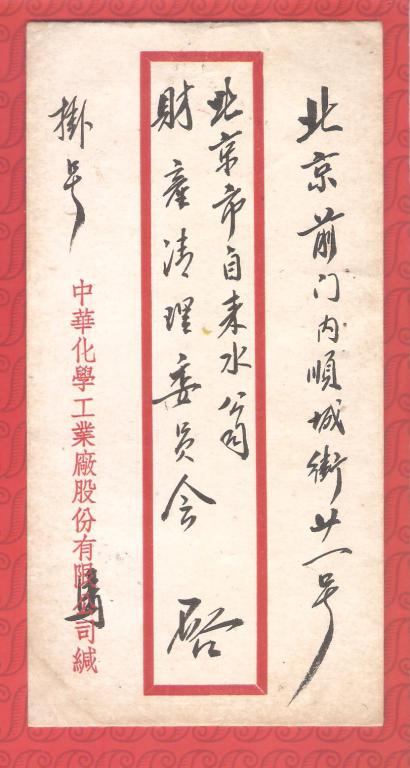 北京前门内順城街廿一号
北京市自来水公司
財産清理委员会 啓
掛号
中華化學工業廠股份有限公司緘